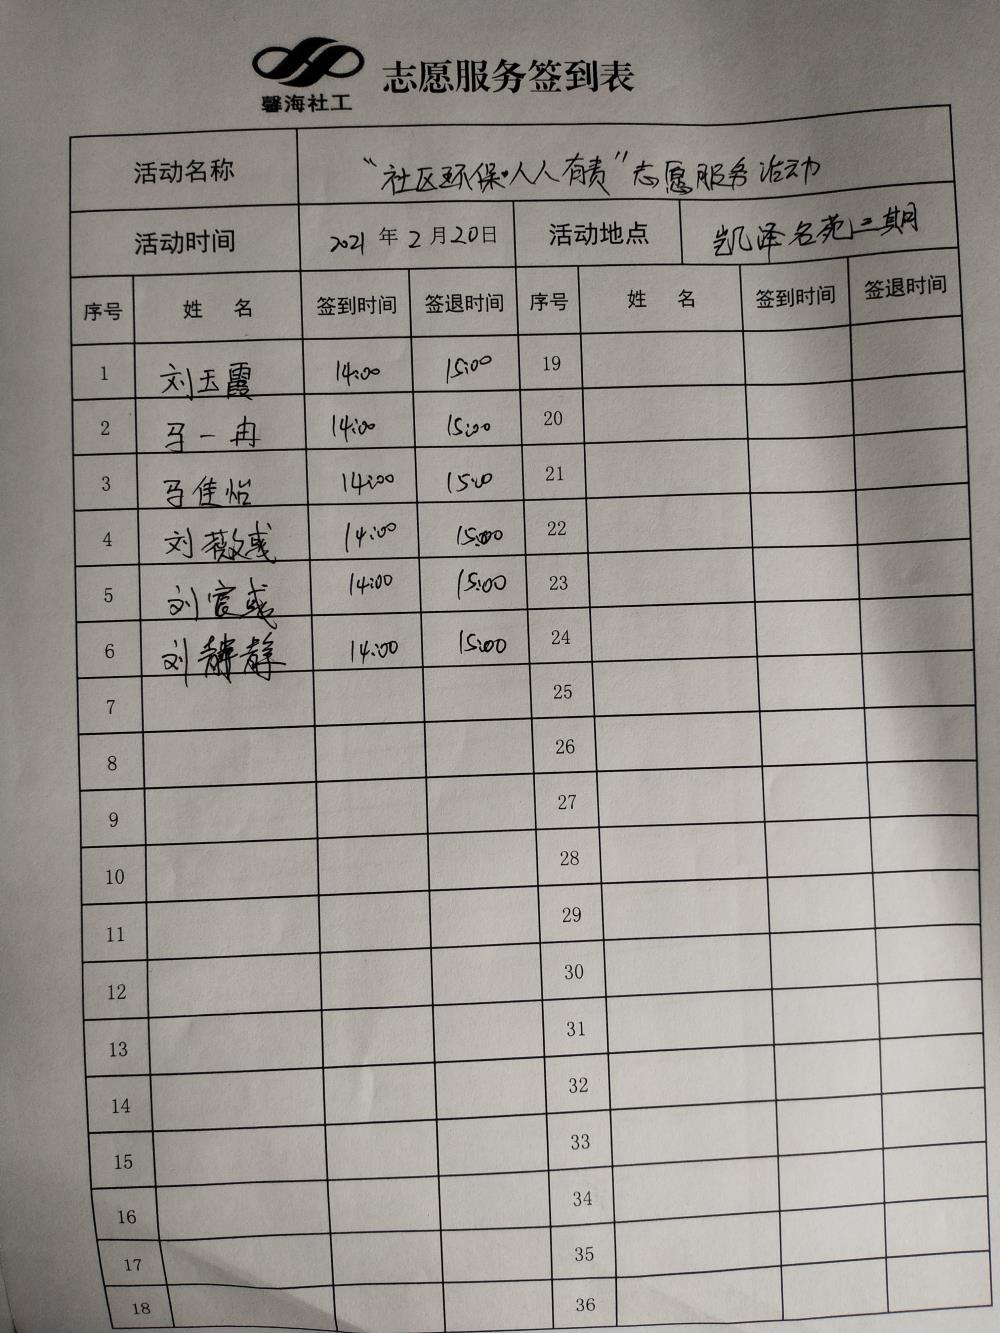 馨海社工
志愿服务签到表
活动名称 “社区环保·人人有责”志愿服务活动
活动时间 2021年2月20日 活动地点 凯泽名苑二期
序号 姓 名 签到时间 签退时间 序号 姓 名 签到时间 签退时间
1 刘玉霞 14:00 15:00 19
2 马一冉 14:00 15:00 20
3 马佳怡 14:00 15:00 21
4 刘薇彧 14:00 15:00 22
5 刘宸彧 14:00 15:00 23
6 刘静静 14:00 15:00 24
7 25
8 26
9 27
10 28
11 29
12 30
13 31
14 32
15 33
16 34
17 35
18 36